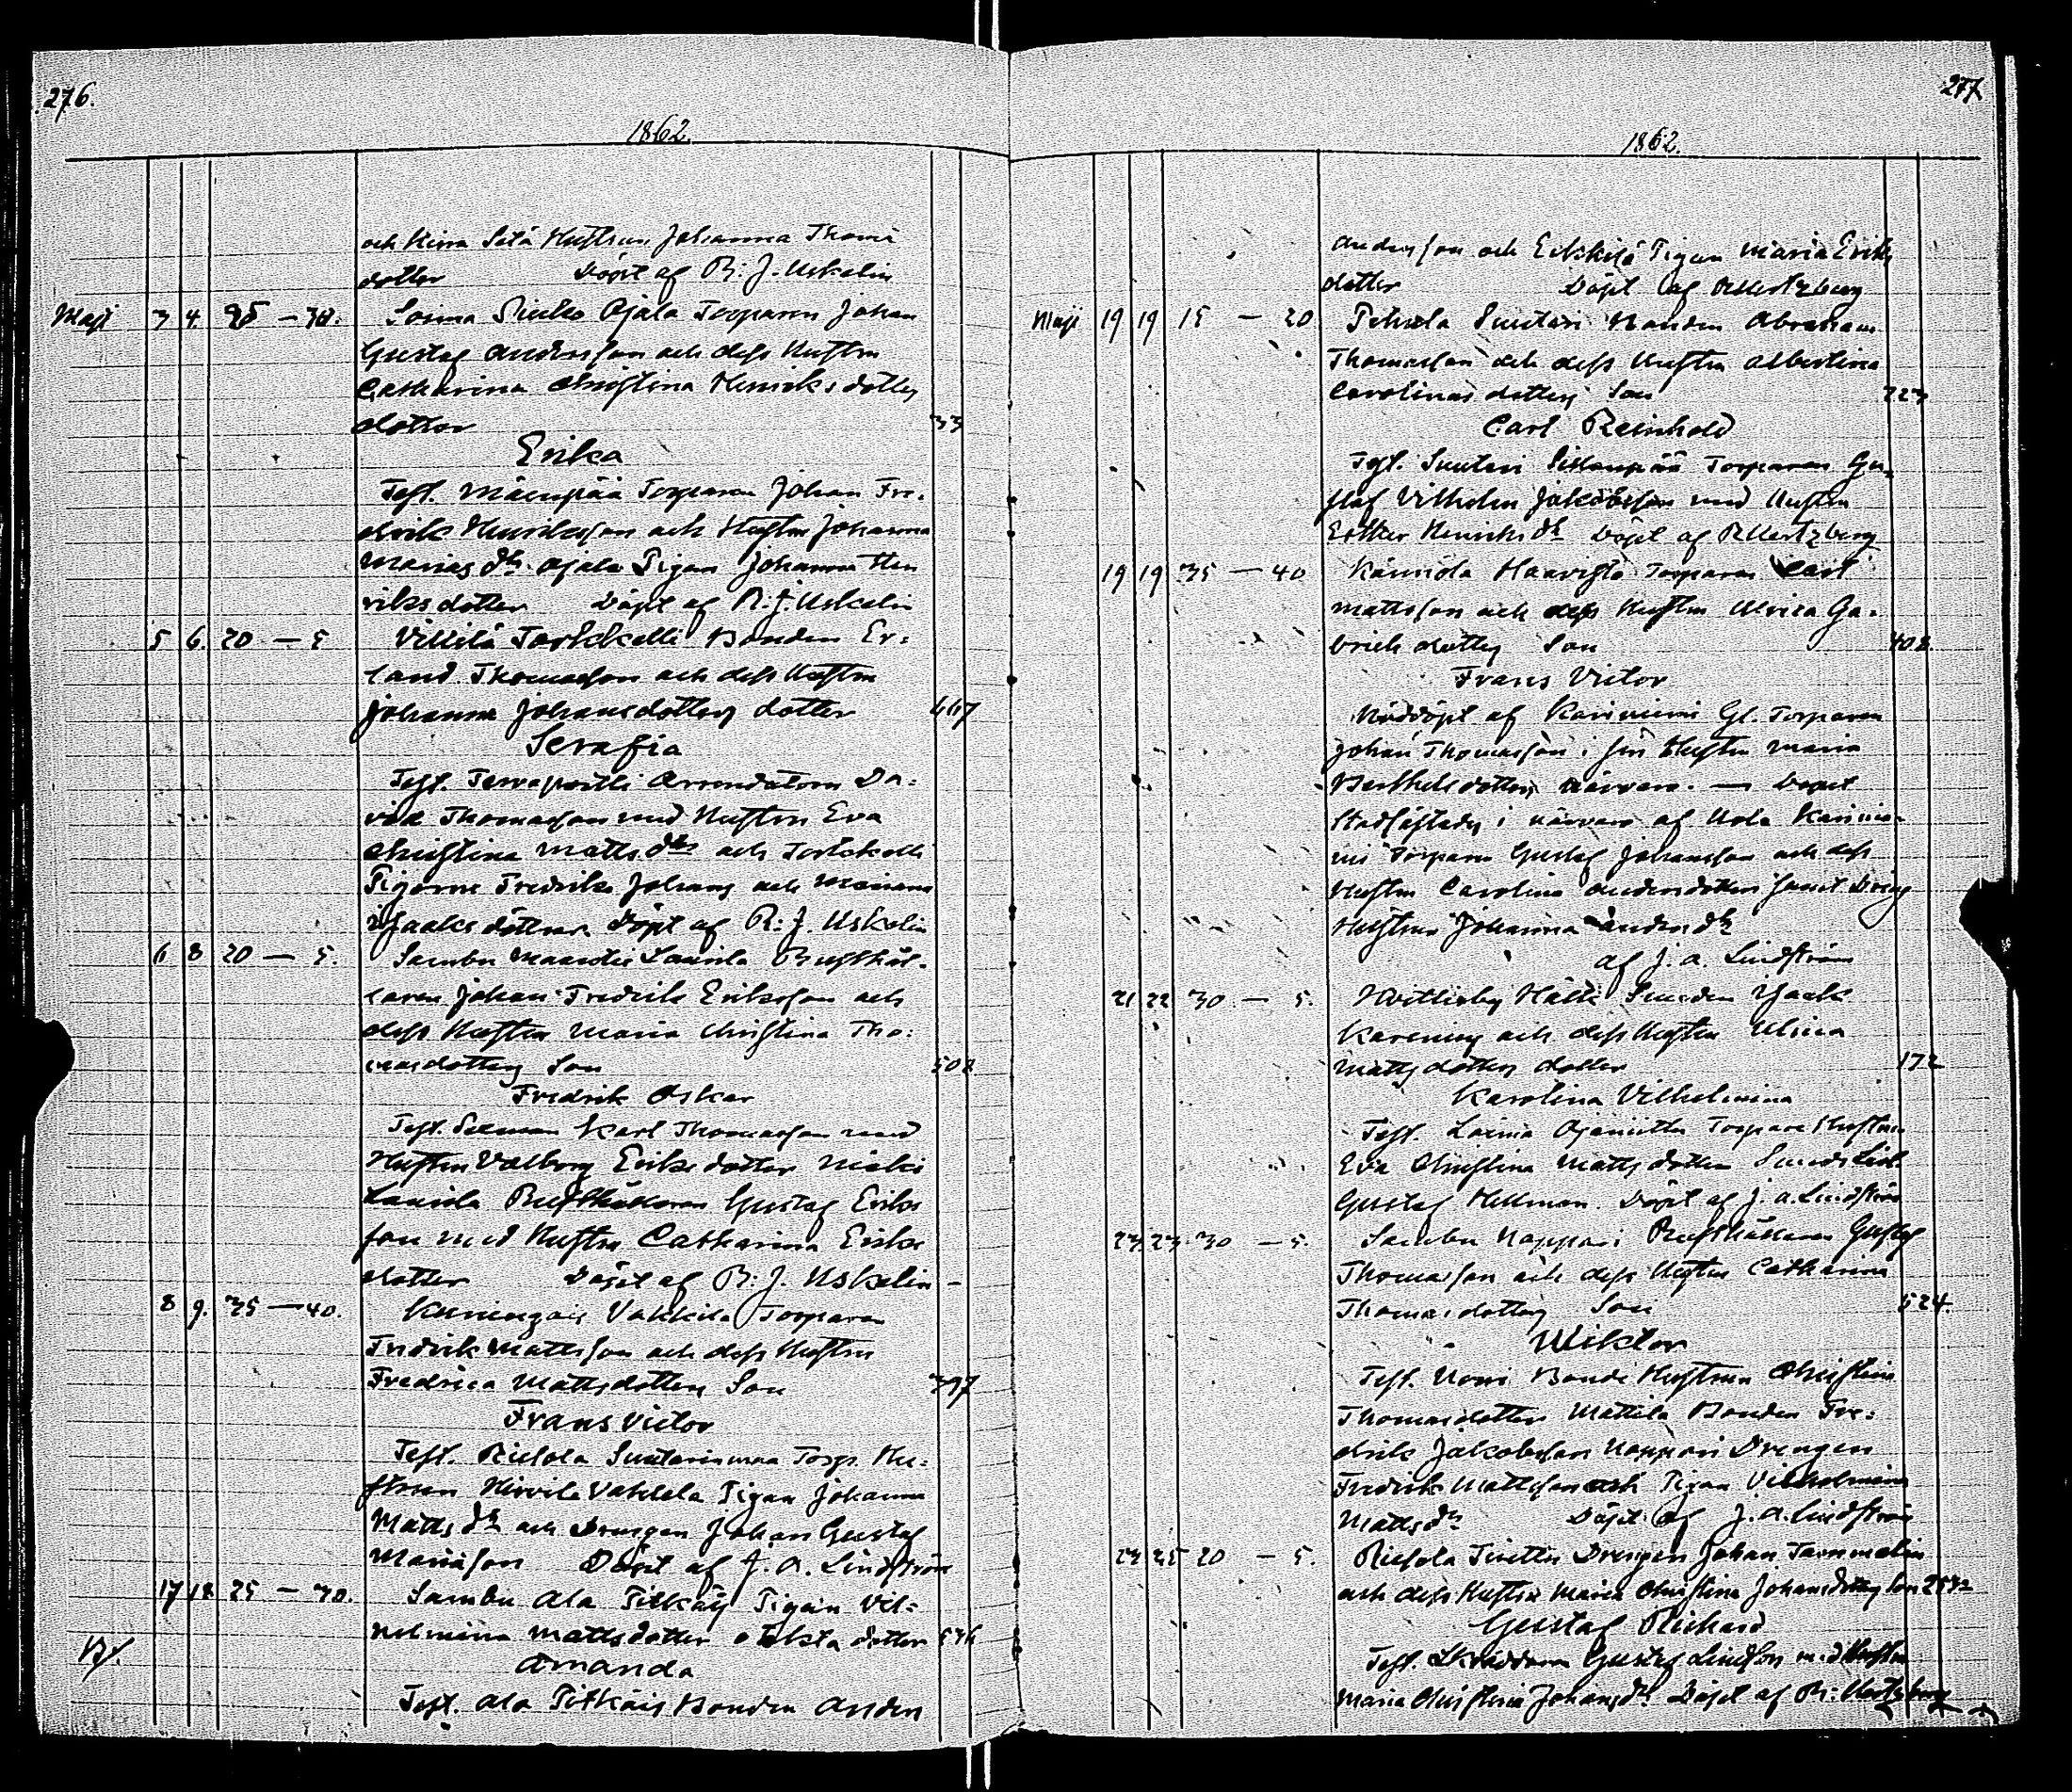 276.
1862.
och Kirra Setä Hustrun Johanna Thomæ
dotter Döpt af R: J. Uskelin
Maji 3 4 25 — 30. Loima Ojala Torparen Johan
Gustaf Andersson och dess Hustru
Catharina Christina Henriksdotters
dotter 33
Erika
Test. Mäenpää Torparen Johan Fre-
drik Henriksson och Hustru Johanna
Mariæ dr. Ojala Pigan Johanna Hen
riksdotter Döpt af R. J. Uskelin
5 6. 20 — 5 Villilä Torkkelli Bonden Er-
land Thomasson och dess Hustru
Johanna Johansdotters dotter 467
Serafia
Test. Arrendatorn Da-
vid Thomasson med Hustru Eva
Christina Matts dr och Torkkelli
Pigorne Fredrika Johans och Mariana
Isaaks döttrar. Döpt af R: J. Uskelin
6 8 20 — 5. Sambu Laurila Rusthål-
laren Johan Fredrik Eriksson och
dess Hustru Maria Christina Tho-
masdotters Son 502
Fredrik Oskar
Test. Karl Thomasson med
Hustru Valborg Eriksdotter
Laurila Rusthållaren Gustaf Eriks
son med Hustru Catharina Eriks
dotter Döpt af R: J. Uskelin
8 9. 35 — 40. Vahkila Torparen
Fredrik Mattsson och dess Hustru
Fredrica Mattsdotters Son 397
Frans Victor
Test. Riesola Suutarinmaa Torp. Hu-
strun Pigan Johanna
Matts dr och Drengen Johan Gustaf
Mariæson Döpt af J. A. Lindström
17 18 25 — 30. Sambu Ala Pitkäis Pigan Vil-
helmina Mattsdotter oäkta dotter 536
Amanda
Test. Ala Pitkäis Bonden Anders
277
1862.
Andersson och Erkkilä Pigan Maria Eriks
dotter Döpt af R Hertzberg
Maji 19 19 15 — 20 Suutari Bonden Abraham
Thomasson och dess Hustru Albertina
Carolinas dotters Son 223
Carl Reinhold
Test. Suutari Sillanpää Torparen Gu-
staf Vilhelm Jakobsson med Hustru
Esther Henriks dr Döpt af R Hertzberg
19 19 35 — 40 Kärriola Haavisto Torparen Carl
Mattsson och dess Hustru Ulrica Ga-
briels dotters Son 408.
Frans Victor
Nöddöpt af Kariniemi Gl. Torparen
Johan Thomasson i sin Hustru Maria
Berthelsdotters närvaro. — Dopet
Stadfästades i närvaro af Uola Karinie-
mi Torparen Gustaf Johansson och dess
Hustru Carolina Andersdotter samt Drengs
Hustrun Johanna Anders dr
af J. A. Lindström
21 22 30 — 5. Hvittisby Hälli Smeden Isaak
Karenius och dess Hustru Ulrica
Mattsdotters dotter 172
Karolina Vilhelmina
Test. Loima Ojaniittu Torpare Hustrun
Eva Christina Mattsdotter
Gustaf Hellman. Döpt af J. A. Lindström
23. 23. 30 — 5. Sambu Nappari Rusthållaren Gustaf
Thomasson och dess Hustru Catharina
Thomasdotters Son 524.
Wiktor
Test. Uoni Bonde Hustrun Christina
Thomasdotter Mattila Bonden Fre-
drik Jakobsson Nappari Drengen
Fredrik Mattsson och Pigan Vilhelmina
Matts dr Döpt af J. A. Lindström
23 25 20 — 5. Riesola Drengen Johan Tammelin
och dess Hustru Maria Christina Johansdotters Son
Gustaf Richard
Test. Skräddaren Gustaf Lindfors med Hustru
Maria Christina Johans dr Döpt af R: Hertzberg